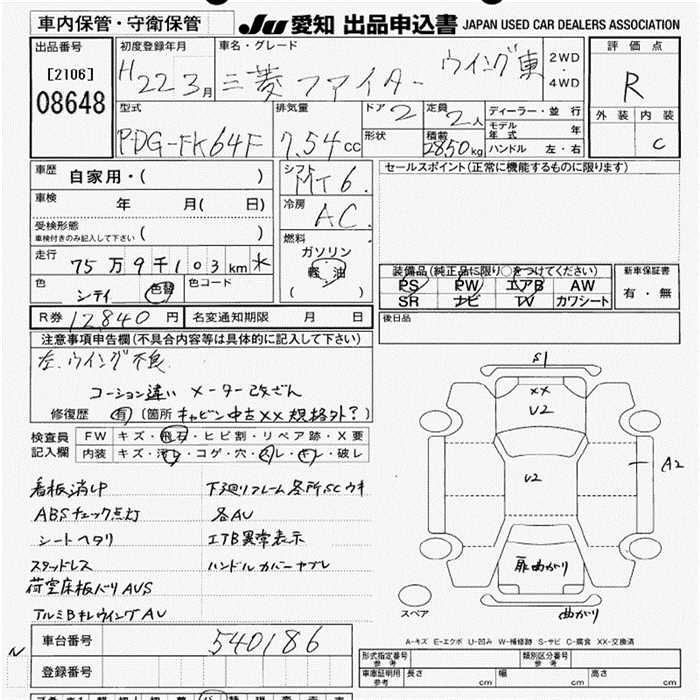 車内保管・守衛保管 JU 愛知 出品申込書 JAPAN USED CAR DEALERS ASSOCIATION
出品番号 初度登録年月 車名・グレード 2WD・4WD 評価点
[2106] H22 3月 三菱ファイター ウイング車 R
08648 型式 排気量 ドア 2 定員 2人 ディーラー・並行 外装 内装
PDG-FK64F 7.54cc 形状 積載 2850kg モデル年式 年 C
ハンドル 左・右
車歴 自家用・( ) シフト MT6. セールスポイント(正常に機能するものに限ります)
車検 年 月( 日) 冷房 AC.
受検形態 ( )
車検付きのみ記入して下さい
燃料
走行 75万9千103km ガソリン
軽油 装備品(純正品に限り○をつけてください) 新車保証書
色 色替 色コード ( ) PS PW エアB AW 有・無
SR ナビ TV カワシート
R券 12,840円 名変通知期限 月 日 後日品
注意事項申告欄(不具合内容等は具体的に記入して下さい)
左.ウイング不良
コーション違い メーター改ざん
修復歴 有 (箇所 キャビン中古XX 規格外?)
検査員 FW キズ・飛石・ヒビ割・リペア跡・X要
記入欄 内装 キズ・汚レ・コゲ・穴・スレ・キレ・破レ
S1
XX
V2
V2
A2
扉曲がり
曲がり
スペア
看板消しP 下廻りフレーム各所SCウキ
ABSチェック点灯 各AU
シートヘタリ エアB異常表示
スタッドレス ハンドルカバーヤブレ
荷室床板バリAVS
アルミBキレウイングAU
車台番号 540186
登録番号
A-キズ E-エクボ U-凹み W-補修跡 S-サビ C-腐食 XX-交換済
形式指定番号 参考 類別区分番号 参考
車庫証明用 参考 長さ cm 幅 cm 高さ cm